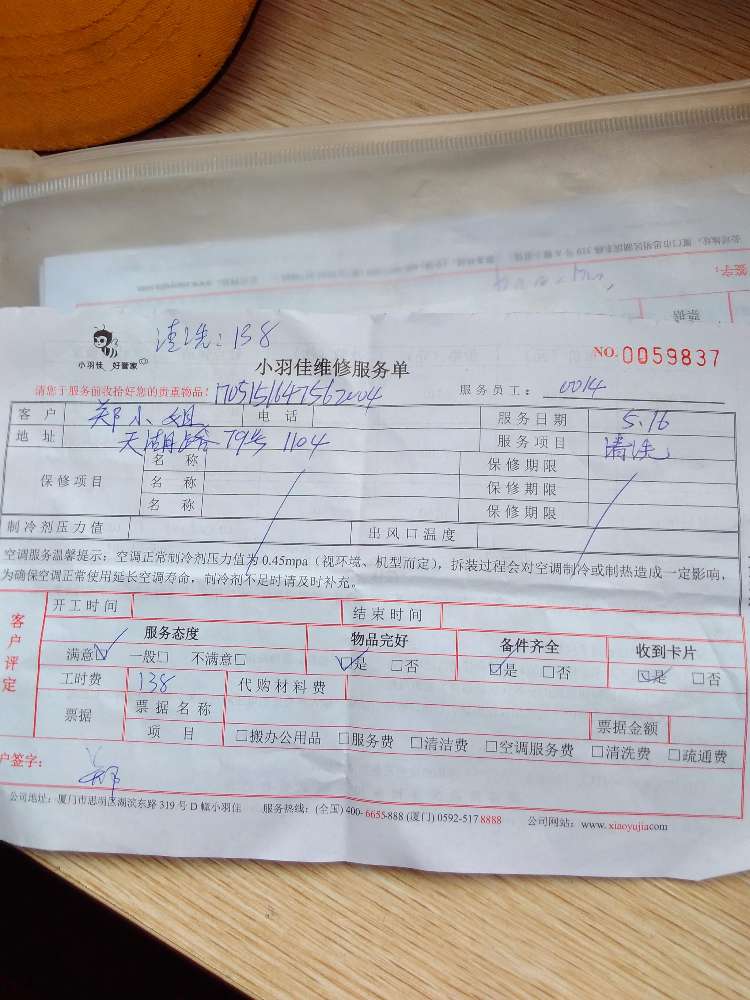 签字：
票据
清洗：138
小羽佳 好管家
小羽佳维修服务单
NO.0059837
请您于服务前收拾好您的贵重物品！
服务员工：0014
客户 郑小姐 电话 服务日期 5.16
地址 天湖路 79号 1104 服务项目 清洗
保修项目 名称 保修期限
名称 保修期限
名称 保修期限
制冷剂压力值 出风口温度
空调服务温馨提示：空调正常制冷剂压力值为0.45mpa（视环境、机型而定），拆装过程会对空调制冷或制热造成一定影响，
为确保空调正常使用延长空调寿命，制冷剂不足时请及时补充。
客户评定
开工时间 结束时间
服务态度 物品完好 备件齐全 收到卡片
满意☑ 一般□ 不满意□ ☑是 □否 ☑是 □否 ☑是 □否
工时费 138 代购材料费
票据 票据名称 票据金额
项目 □搬办公用品 □服务费 □清洁费 □空调服务费 □清洗费 □疏通费
户签字： 郑
公司地址：厦门市思明区湖滨东路319号D幢小羽佳 服务热线：(全国)400-6655-888 (厦门)0592-517 8888 公司网站：www.xiaoyujia.com